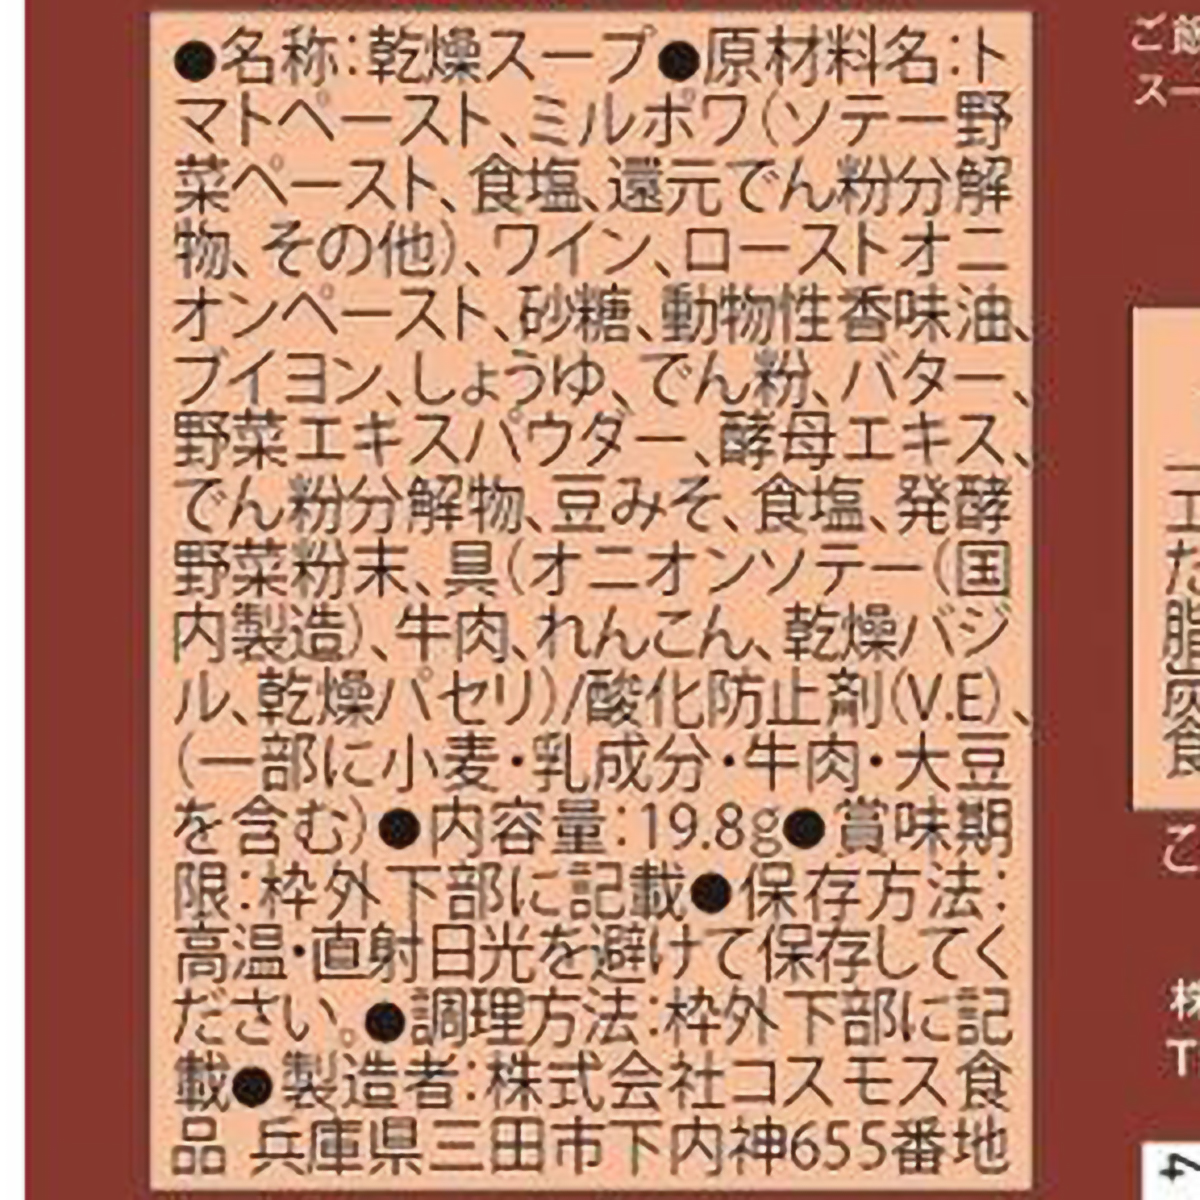 ●名称：乾燥スープ●原材料名：ト
マトペースト、ミルポワ（ソテー野
菜ペースト、食塩、還元でん粉分解
物、その他）、ワイン、ローストオニ
オンペースト、砂糖、動物性香味油、
ブイヨン、しょうゆ、でん粉、バター、
野菜エキスパウダー、酵母エキス、
でん粉分解物、豆みそ、食塩、発酵
野菜粉末、具（オニオンソテー（国
内製造）、牛肉、れんこん、乾燥バジ
ル、乾燥パセリ）/酸化防止剤（V.E）、
（一部に小麦・乳成分・牛肉・大豆
を含む）●内容量：19.8g●賞味期
限：枠外下部に記載●保存方法：
高温・直射日光を避けて保存してく
ださい。●調理方法：枠外下部に記
載●製造者：株式会社コスモス食
品 兵庫県三田市下内神655番地
ご飯
スー
エ
た
脂
灰
食
こ
株
T
4